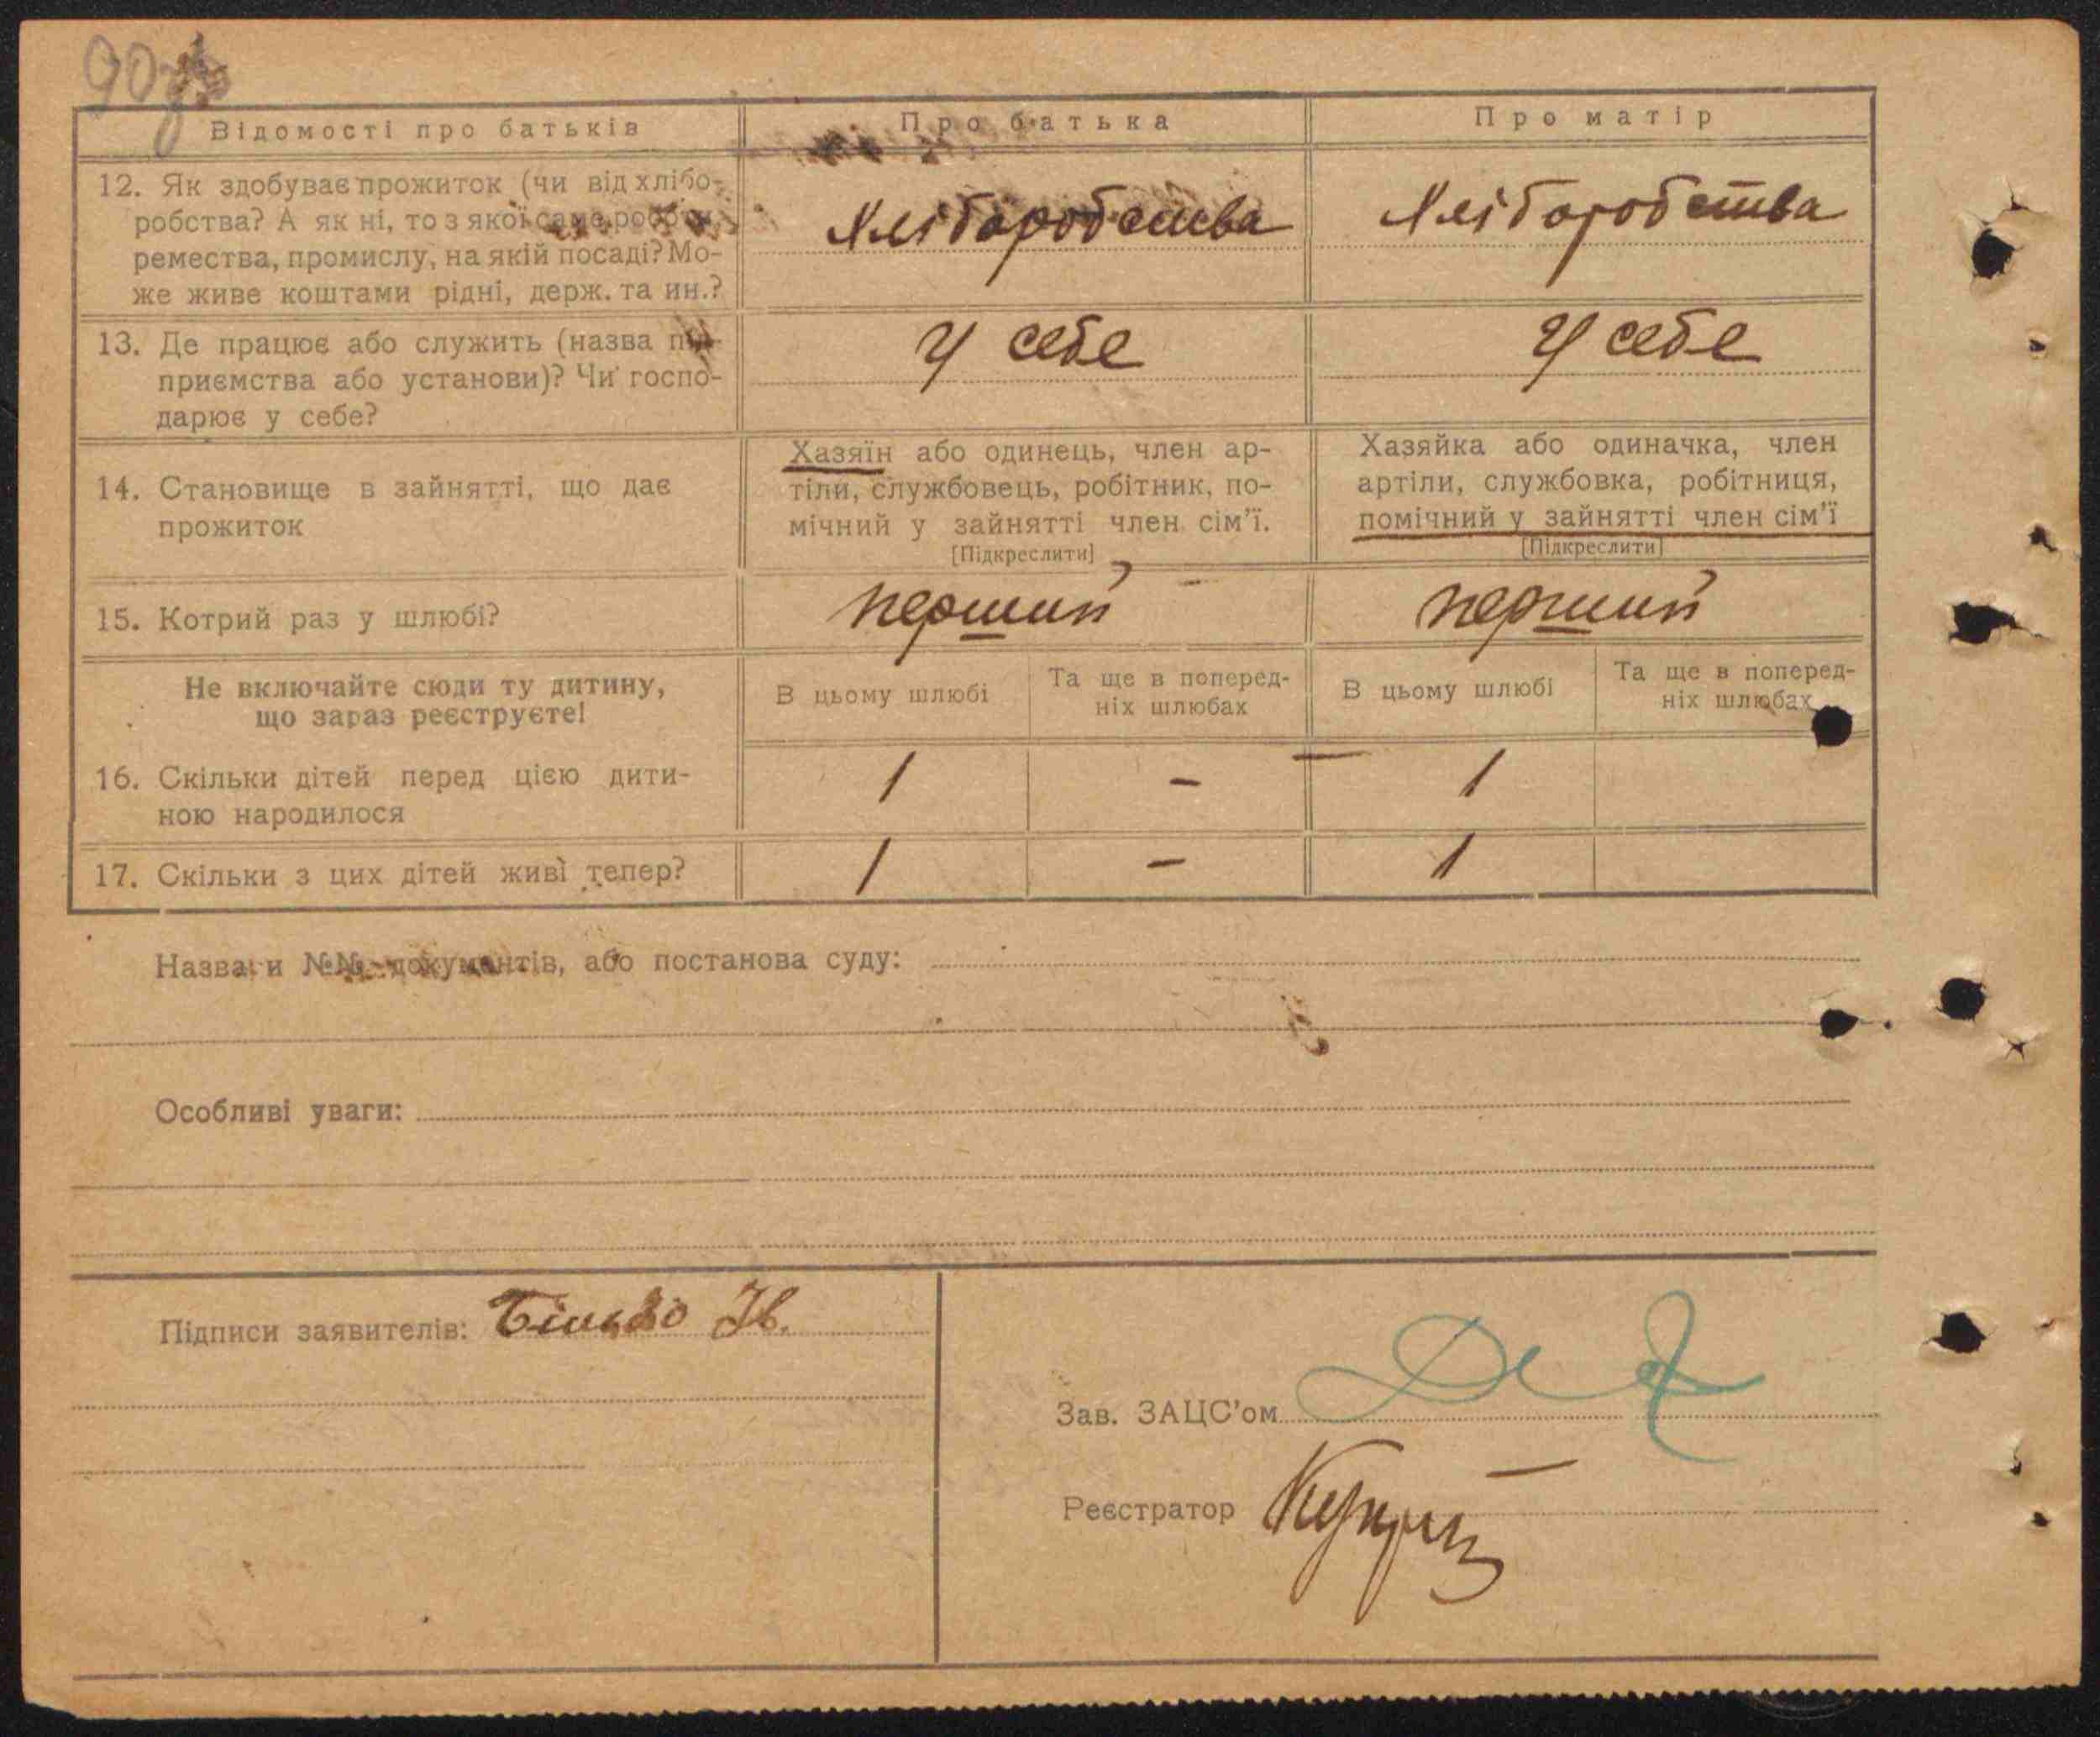 90
Відомості про батьків
Про батька
Про матір
12. Як здобуває прожиток (чи від хлібо-
робства? А як ні, то з якої саме роботи,
ремества, промислу, на якій посаді? Мо-
же живе коштами рідні, держ. та ин.?
Хліборобства
Хліборобства
13. Де працює або служить (назва під-
приємства або установи)? Чи госпо-
дарює у себе?
У себе
У себе
14. Становище в зайнятті, що дає
прожиток
Хазяїн або одинець, член ар-
тіли, службовець, робітник, по-
мічний у зайнятті член сім'ї.
[Підкреслити]
Хазяйка або одиначка, член
артіли, службовка, робітниця,
помічний у зайнятті член сім'ї
[Підкреслити]
15. Котрий раз у шлюбі?
перший
перший
Не включайте сюди ту дитину,
що зараз реєструєте!
В цьому шлюбі
Та ще в поперед-
ніх шлюбах
В цьому шлюбі
Та ще в поперед-
ніх шлюбах
16. Скільки дітей перед цією дити-
ною народилося
1
-
1
17. Скільки з цих дітей живі тепер?
1
-
1
Назва и №№ документів, або постанова суду:
Особливі уваги:
Підписи заявителів: Ів.
Зав. ЗАЦС'ом
Реєстратор